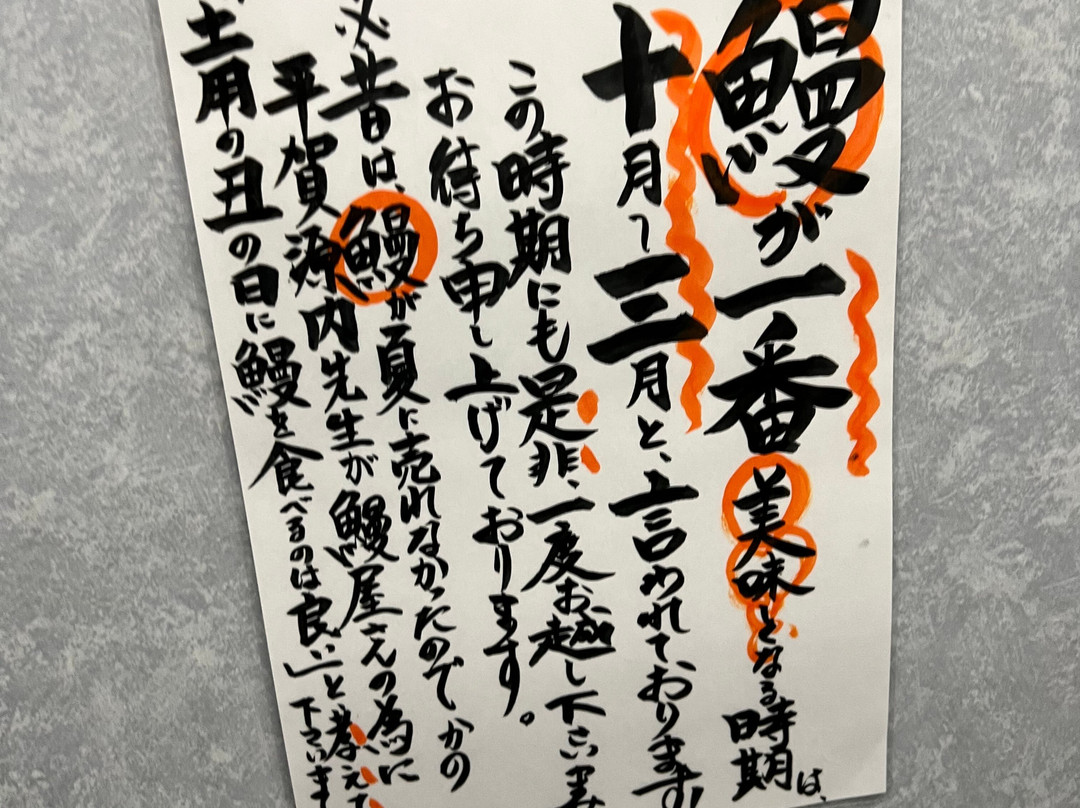 鰻が一番美味となる時期は、
十月〜三月と、言われております!
この時期にも是非、一度お越し下さいませ
お待ち申し上げております。
※昔は、鰻が夏に売れなかったのでかの
平賀源内先生が鰻屋さんの為に
土用の丑の日に鰻を食べるのは良い」と教えて
下さいます